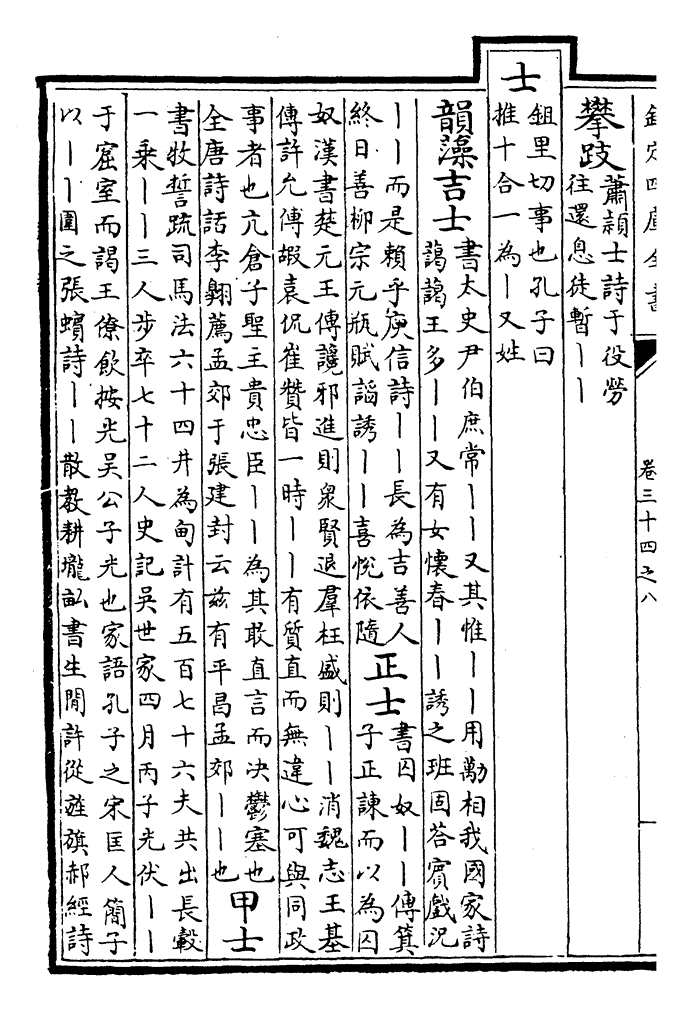 欽定四庫全書 卷三十四之八
攀跂 蕭頴士詩于役勞
往還息徒暫丨丨
士 鉏里切事也孔子曰
推十合一為丨又姓
韻藻 吉士 書太史尹伯庶常丨丨又其惟丨丨用勱相我國家詩
藹藹王多丨丨又有女懷春丨丨誘之班固荅賓戲况
丨丨而是賴乎庾信詩丨丨長為吉善人
終日善柳宗元瓶賦謟誘丨丨喜悅依隨
正士 書囚奴丨丨傳箕
子正諫而以為囚
奴漢書楚元王傳讒邪進則衆賢退羣枉盛則丨丨消魏志王基
傳許允傅嘏袁侃崔贊皆一時丨丨有質直而無違心可與同政
事者也亢倉子聖主貴忠臣丨丨為其敢直言而决鬱塞也
全唐詩話李翺薦孟郊于張建封云兹有平昌孟郊丨丨也
甲士
書牧誓疏司馬法六十四井為甸計有五百七十六夫共出長轂
一乘丨丨三人步卒七十二人史記吳世家四月丙子光伏丨丨
于窟室而謁王僚飲按光吳公子光也家語孔子之宋匡人簡子
以丨丨圍之張蠙詩丨丨散教耕壠畝書生閒許從旌旗郝經詩